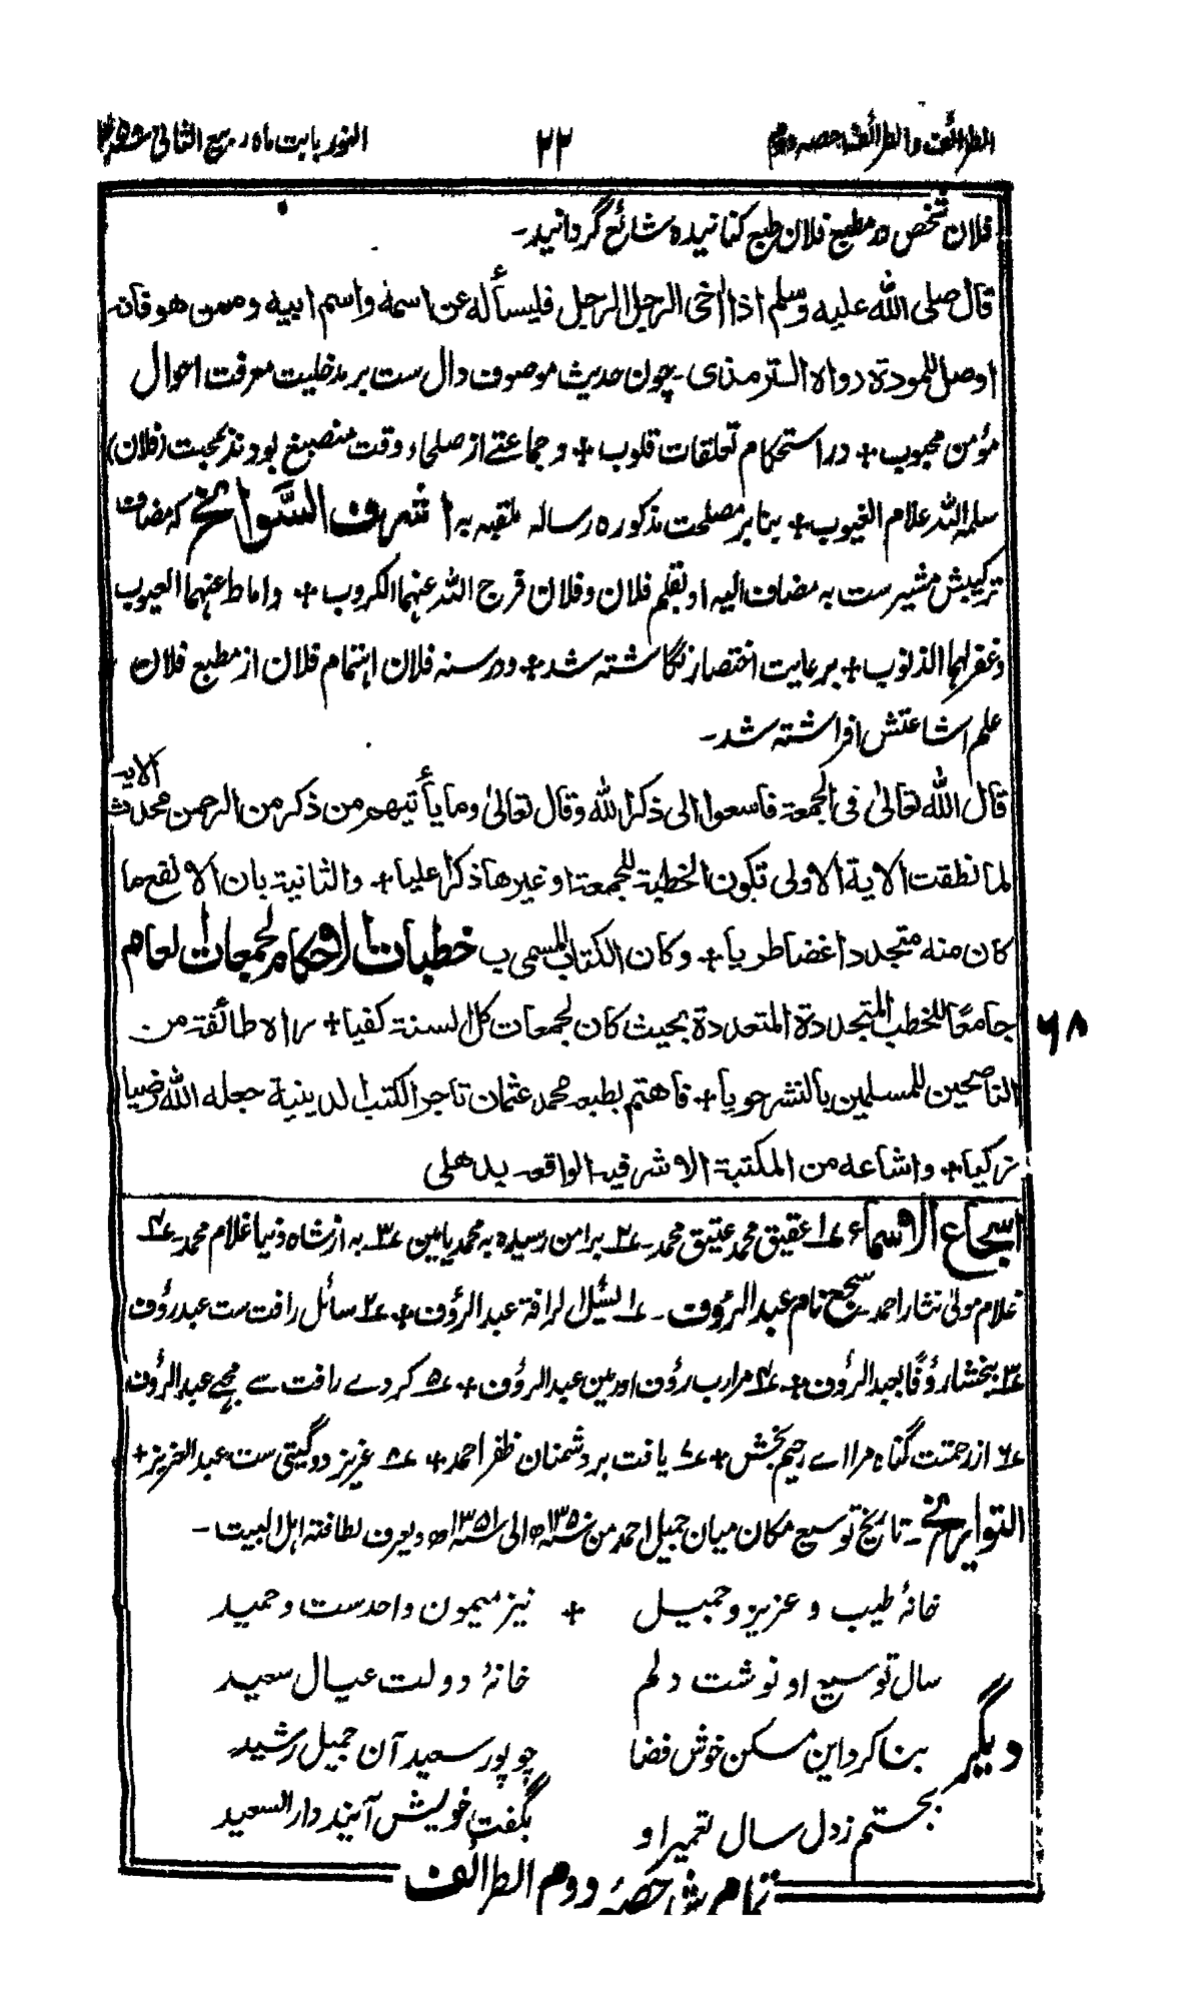 الطرائف والظرائف حصہ دوم
۲۲
النور بابت ماہ ربیع الثانی
فلان شخص در مطبع فلان طبع کنانیدہ شائع گردانید۔
قال صلی اللہ علیہ وسلم اذا اٰخی الرجل الرجل فلیسألہ عن اسمہ واسم ابیہ وممن ھو فانہ
اوصل للمودۃ رواہ الترمذی۔ چون حدیث موصوف دال ست بر مدخلیت معرفت احوال
مؤمن محبوب + در استحکام تعلقات قلوب + و جماعتے از صلحاء وقت منصبغ بودند بمحبت (فلان)
سلمہ اللہ علام الغیوب + بنا بر مصلحت مذکورہ رسالہ ملقبہ بہ اشرف السَّوانح کہ مضاف
ترکیبش مشیرست بہ مضاف الیہ او بقلم فلان و فلان فرج اللہ عنہما الکروب + واماط عنہما العیوب
وغفر لہما الذنوب + برعایت اختصار نگاشتہ شد + و در سنہ فلان اہتمام فلان از مطبع فلان
علم اشاعتش افراشتہ شد۔
قال اللہ تعالیٰ فی الجمعۃ فاسعوا الی ذکر اللہ وقال تعالیٰ وما یأتیھم من ذکر من الرحمن محدث الآیۃ
لما نطقت الایۃ الاولی بکون الخطبۃ للجمعۃ او غیرھا ذکرا علیا + والثانیۃ بان الانفع ما
کان منہ متجددا غضا طریا + وکان الکتاب المسمی ب خطبات الاحکام لجمعات العام
جامعًا للخطب المتجددۃ المتعددۃ بحیث کان لجمعات کل السنۃ کفیا + راٰہ طائفۃ من
۶۸
الناصحین للمسلمین بالنشر حریا + فاھتم بطبعہ محمد عثمان تاجر الکتب الدینیۃ جعلہ اللہ رضیا
زکیا + واشاعہ من المکتبۃ الاشرفیۃ الواقعۃ بدھلی
اسجاع الاسماء ۱؎ عقیق محمد عتیق محمد۔ ۲؎ برامن رسیدہ بہ محمد یامین ۳؎ بہ از شاہ دنیا غلام محمد۔ ۴؎
غلام مولیٰ نثار احمد سجع نام عبدالرؤف۔ ۱؎ لرافۃ عبدالرؤف + ۲؎ سائل رافت ست عبد رؤف
۳؎ بخشا رؤفًا بعبدالرؤف + ۴؎ مرا رب رؤف اور مین عبدالرؤف + ۵؎ کردے رافت سے مجھے عبدالرؤف
۶؎ از رحمتت گناہ مرا اے رحیم بخش + ۷؎ یافت بر دشمنان ظفر احمد + ۸؎ عزیز دو گیتی ست عبدالعزیز +
التواریخ۔ تاریخ توسیع مکان میان جمیل احمد من سنہ ۱۳۵۰ھ الی سنہ ۱۳۵۱ھ ویعرف لطافتہ اہل البیت۔
خانۂ طیب و عزیز و جمیل + نیز میمون و احدست و حمید
سال توسیع او نوشت دلم خانۂ دولت عیال سعید
دیگر بنا کرد این مسکن خوش فضا چو پور سعید آن جمیل رشید
بجستم ز دل سال تعمیر او بگفت خویش آیند دارالسعید
تمام شد حصۂ دوم الطرائف